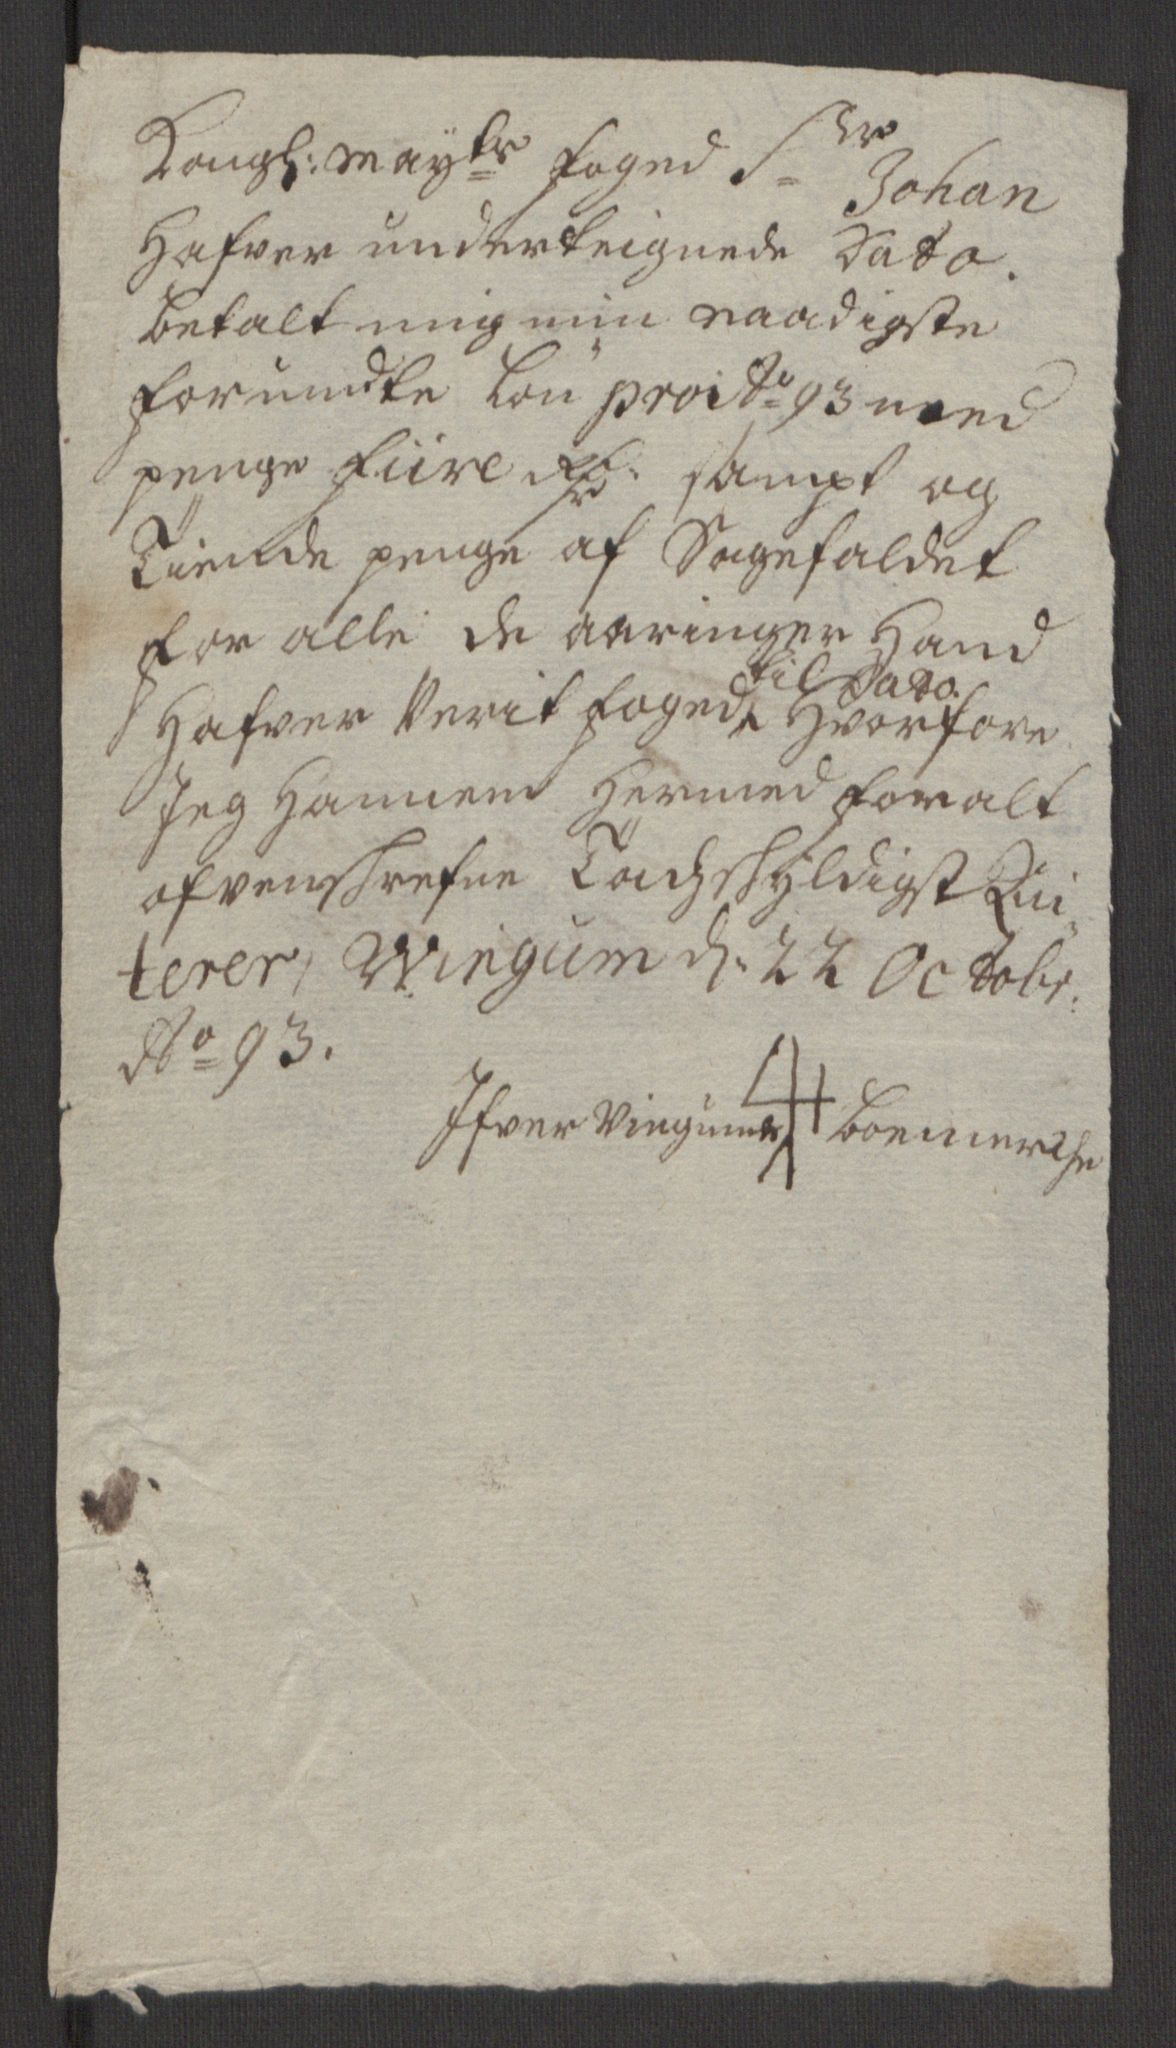 Kongl: mayts foged Sr Johan
Hafver underteignede Dato.
betalt mig min naadigste
forundte Løn pro Ao 93 med
penge fiire Rdr: sampt og
Tiende penge af Sagefaldet
for alle de aaringer Hand
Hafver Verit foged, til Dato. Hvorfore
Jeg Hannem Hermed for alt
ofvenskrefne Tachskyldigst Qui
terer, Wiegum d: 22 Octobr:
Ao 93.
Ifver Viegum boemerche